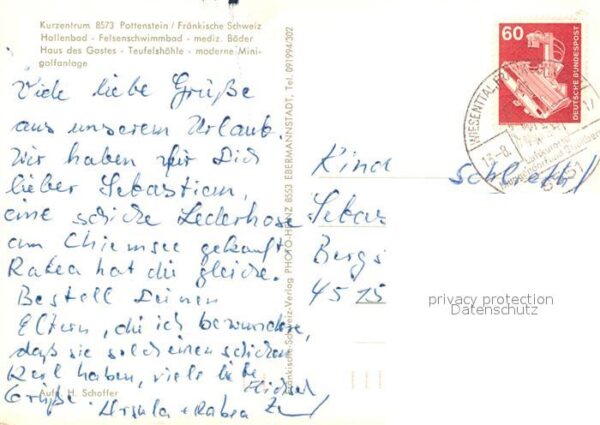 Kurzentrum 8573 Pottenstein / Fränkische Schweiz
Hallenbad - Felsenschwimmbad - mediz. Bäder
Haus des Gastes - Teufelshöhle - moderne Mini-
golfanlage
Viele liebe Grüße
aus unserem Urlaub.
Wir haben für Dich
lieber Sebastian,
eine schicke Lederhose
am Chiemsee gekauft
Rabea hat die gleiche.
Bestell Deinen
Eltern, die ich bewundere,
daß sie solch einen schicken
Kerl haben, viele liebe
Grüße
Ursula + Rabea
Aufn. H. Schoffer
Fränkische-Schweiz-Verlag PHOTO-HEINZ 8553 EBERMANNSTADT, Tel. 091994/302
60
DEUTSCHE BUNDESPOST
WIESENTTAL
13.-8.
Kind
Sebas
Bergs
4515
privacy protection
Datenschutz